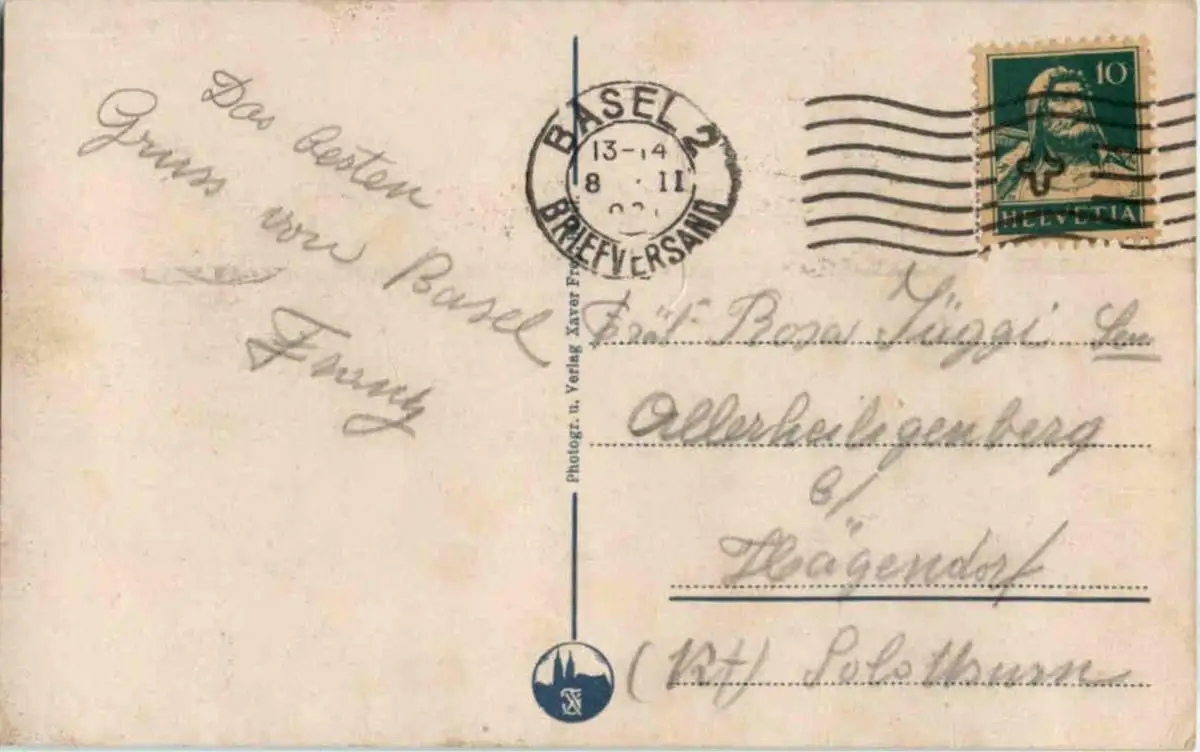 Das besten
Gruss von Basel
Frantz
BASEL 2
13-14
8 II
BRIEFVERSAND
10
HELVETIA
Photogr. u. Verlag Xaver
Rosa Jäggi
Allerheiligenberg
b/
Hägendorf
(Kt) Solothurn